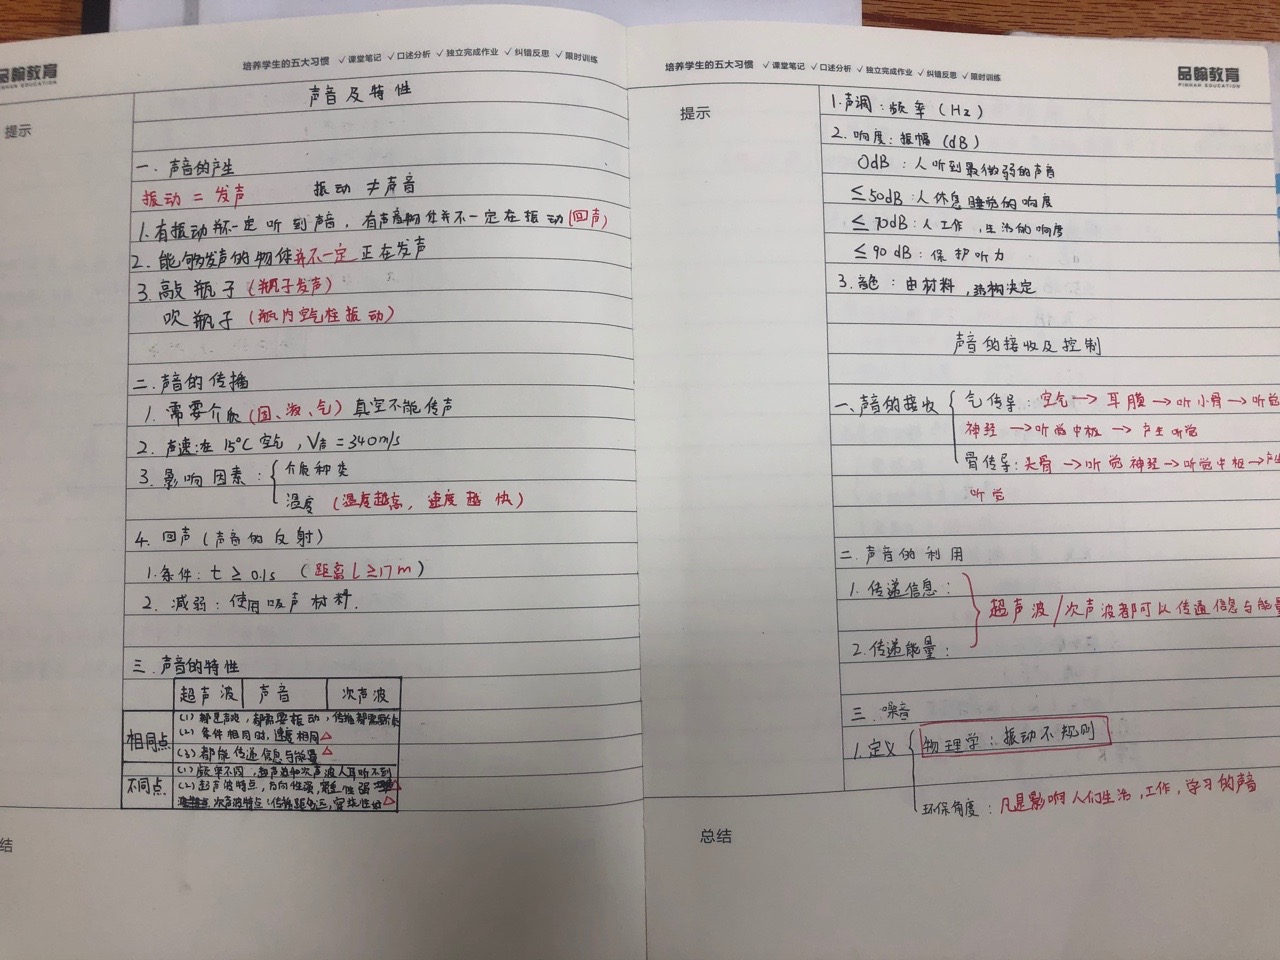 品翰教育
PINHAN EDUCATION
培养学生的五大习惯 ✓课堂笔记 ✓口述分析 ✓独立完成作业 ✓纠错反思 ✓限时训练
提示
声音及特性
一.声音的产生
振动=发声 振动≠声音
1.有振动并不一定听到声音,有声音物体并不一定在振动(回声)
2.能够发声的物体并不一定正在发声
3.敲瓶子(瓶子发声)
吹瓶子(瓶内空气柱振动)
二.声音的传播
1.需要介质(固、液、气)真空不能传声
2.声速:在15℃空气,V声=340m/s
3.影响因素:{介质种类
温度(温度越高,速度越快)
4.回声(声音的反射)
1.条件:t≥0.1s(距离l≥17m)
2.减弱:使用吸声材料.
三.声音的特性
超声波 声音 次声波
相同点
(1)都是声波,都需要振动,传播都需要
(2)条件相同时,速度相同△
(3)都能传递信息与能量△
不同点
(1)频率不同,超声波和次声波人耳听不到
(2)超声波特点:方向性强,穿透性强
次声波特点:传播距离远,穿
总结
培养学生的五大习惯 ✓课堂笔记 ✓口述分析 ✓独立完成作业 ✓纠错反思 ✓限时训练
品翰教育
PINHAN EDUCATION
提示
1.声调:频率(Hz)
2.响度:振幅(dB)
0dB:人听到最微弱的声音
≤50dB:人休息睡觉的响度
≤70dB:人工作,生活的响度
≤90dB:保护听力
3.音色:由材料,结构决定
声音的接收及控制
一、声音的接收{气传导:空气→耳膜→听小骨→听觉
神经→听觉中枢→产生听觉
骨传导:头骨→听觉神经→听觉中枢→产生
听觉
二.声音的利用
1.传递信息:
超声波/次声波都可以传递信息与能量
2.传递能量:
三.噪音
1.定义{物理学:振动不规则
环保角度:凡是影响人们生活,工作,学习的声音
总结